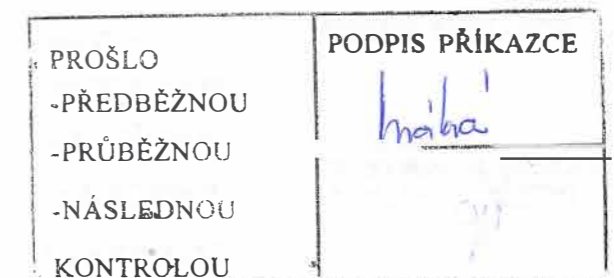 PROŠLO
-PŘEDBĚŽNOU
-PRŮBĚŽNOU
-NÁSLEDNOU
KONTROLOU
PODPIS PŘÍKAZCE